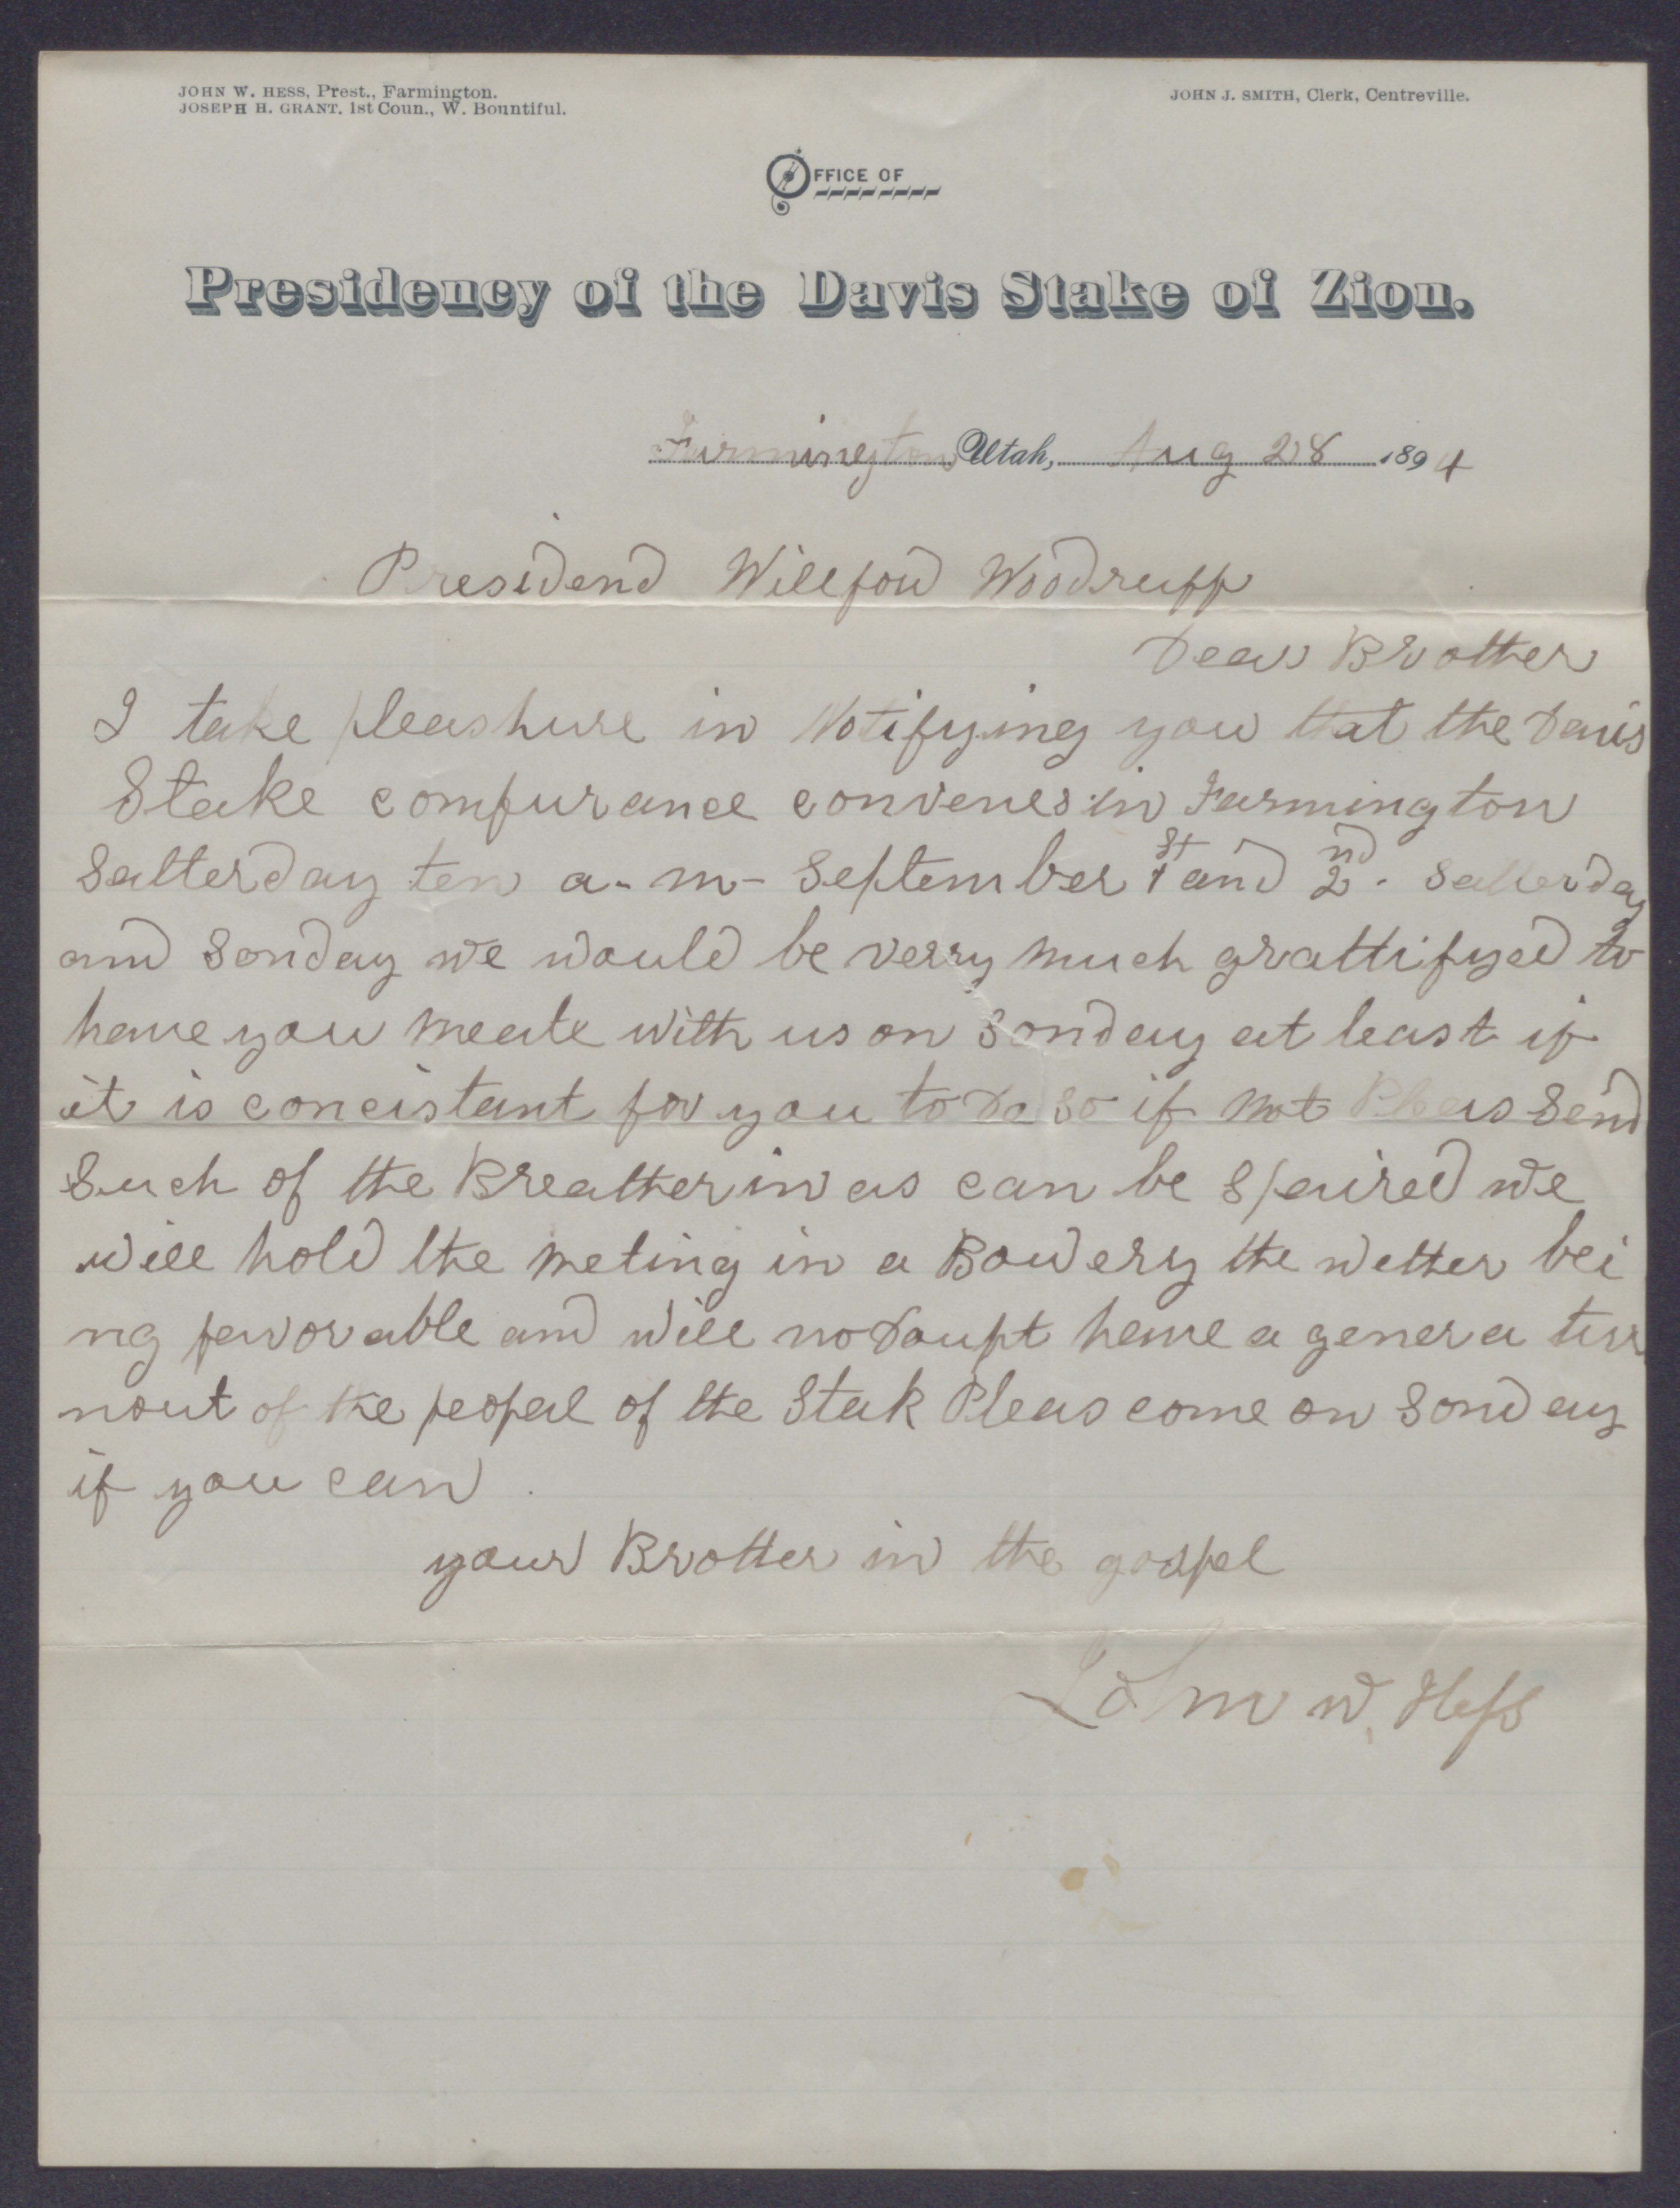 JOHN W. HESS, Prest., Farmington.
JOSEPH H. GRANT, 1st Coun., W. Bountiful.
JOHN J. SMITH, Clerk, Centreville.
OFFICE OF
Presidency of the Davis Stake of Zion.
Farmington Utah, Aug 28 1894
Presidend Willford Woodruff
Dear Brother
I take pleashure in Notifying you that the Davis
Stake comfurance convenes in Farmington
Satterday ten a-m- September 1st and 2nd. Satterday
and Sonday we would be verry much grattifyed to
have you meate with us on Sonday at least if
it is concistant for you to Do so if not Pleas Send
Such of the Breatherin as can be Spaired we
will hold the meting in a Bowery the wether bei
ng favorable and will no Doupt have a genera tur
nout of the peopel of the Stak Pleas come on Sonday
if you can
your Brother in the gospel
John W. Hess